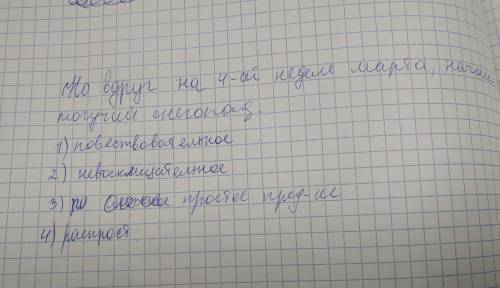 Но вдруг на 4-ой неделе марта, начал
могучий снегопад.
1) повествовательное
2) невосклицательное
3) простое пред-ие
4) распрост.